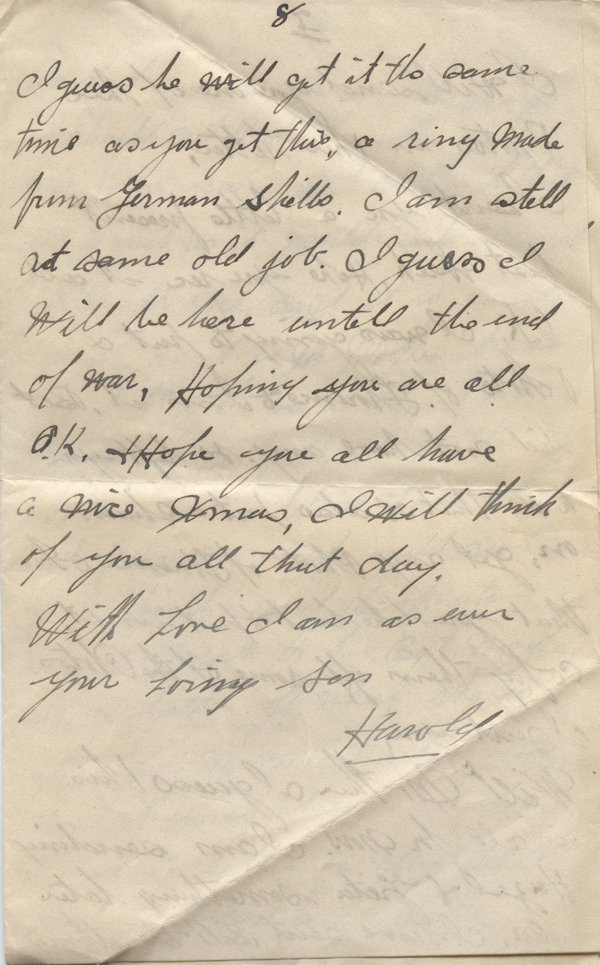 8
I guess he will get it the same
time as you get this, a ring made
from German Shells. I am still
at same old job. I guess I
Will be here untell the end
of war, Hoping you are all
O.K. + Hope you all have
a nice Xmas, I Will think
of you all that day.
With Love I am as ever
your Loving Son
Harold